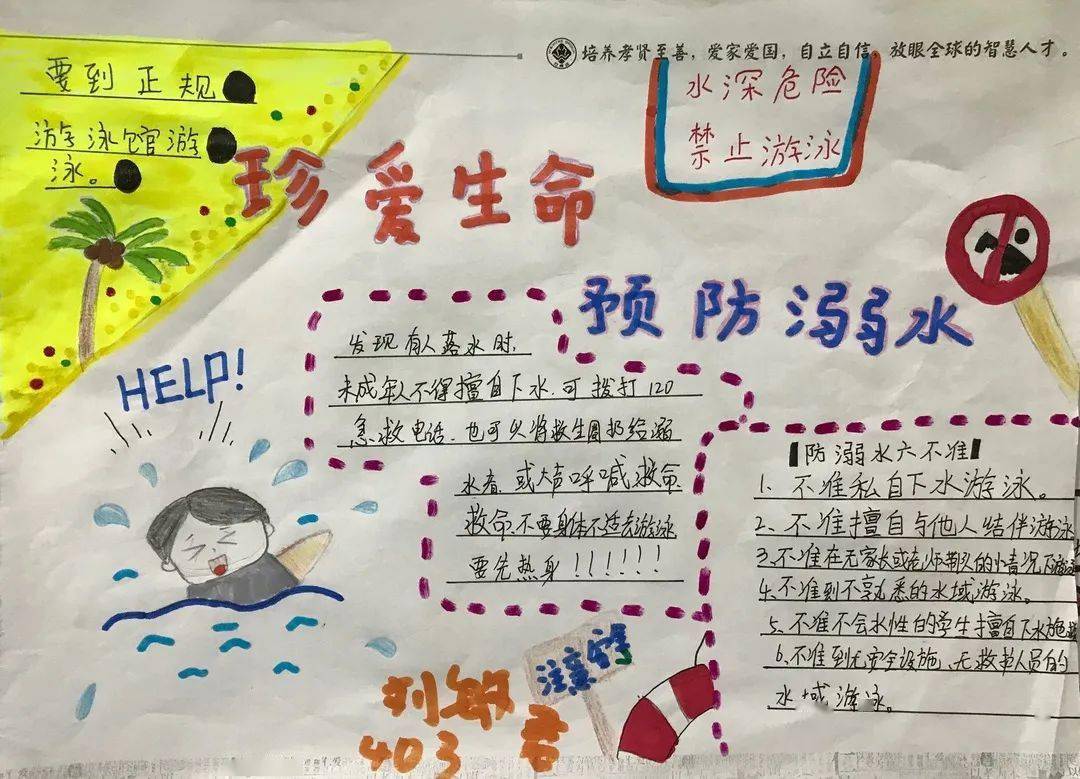 培养孝贤至善，爱家爱国，自立自信，放眼全球的智慧人才。
要到正规
游泳馆游
泳。
水深危险
禁止游泳
珍爱生命
预防溺水
HELP!
发现有人落水时,
未成年人不得擅自下水.可拨打120
急救电话.也可以将救生圈扔给溺
水者.或大声呼喊救命
救命.不要身体不适去游泳
要先热身!!!!!!
防溺水六不准
1、不准私自下水游泳。
2、不准擅自与他人结伴游泳
3.不准在无家长或老师带队的情况下游
4.不准到不熟悉的水域游泳。
5、不准不会水性的学生擅自下水施
6.不准到无安全设施、无救护人员的
水域游泳。
注意安全
刘敏君
403